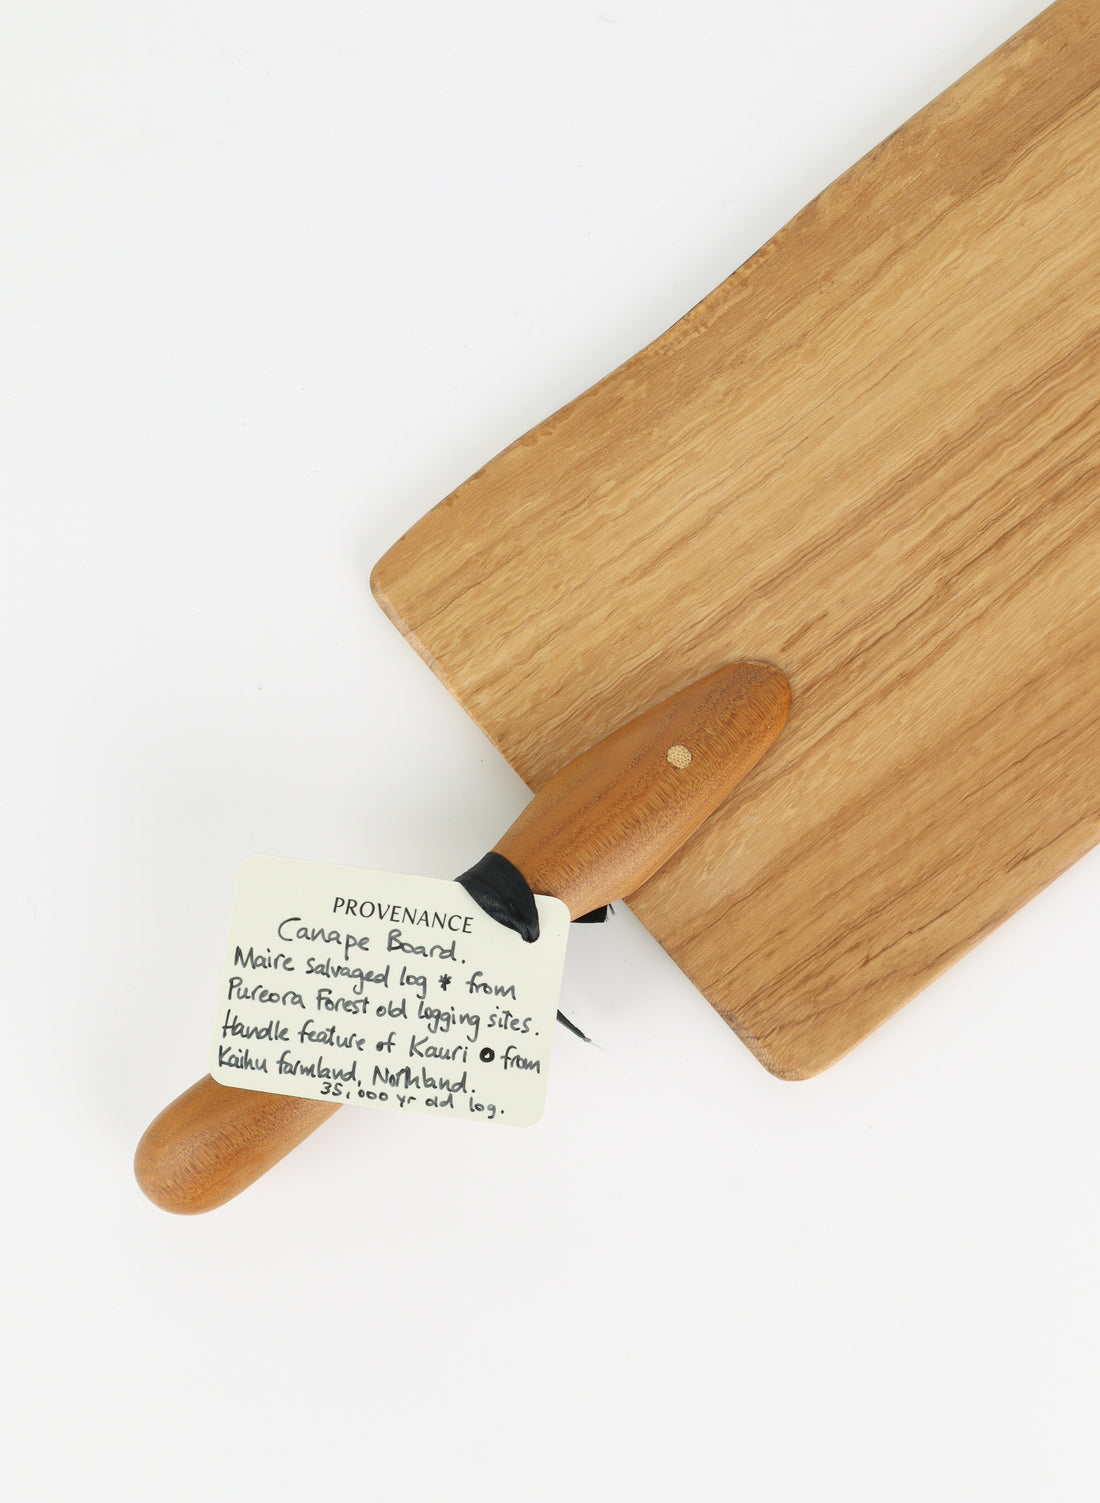 PROVENANCE
Canape Board.
Maire salvaged log * from
Pureora Forest old logging sites.
Handle feature of Kauri from
Kaihu farmland, Northland.
35,000 yr old log.